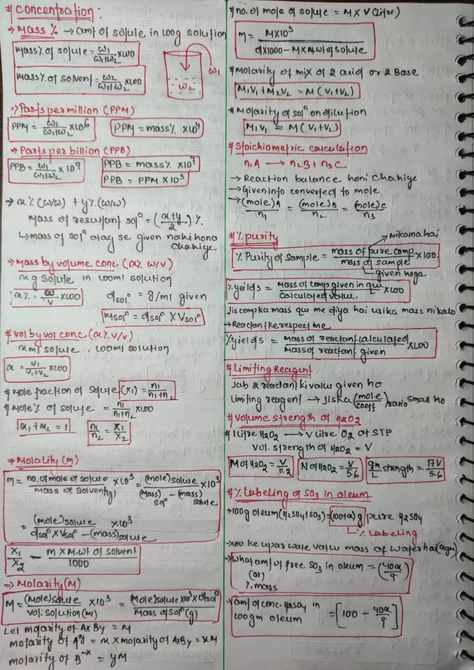 # Concentration:
⇒ Mass % → amt of solute in 100g solution
Mass% of solute = w1/(w1+w2) × 100
Mass% of solvent = w2/(w1+w2) × 100
w1
w2
⇒ Parts per million (PPM)
PPM = w1/(w1+w2) × 10^6
PPM = mass% × 10^4
⇒ Parts per billion (PPB)
PPB = w1/(w1+w2) × 10^9
PPB = mass% × 10^7
PPB = PPM × 10^3
→ x% (w/w) + y% (w/w)
Mass of resultant sol^n = (x+y/2)%
↳ mass of sol^n alag se given nahi hona chahiye
⇒ Mass by volume conc. (x% w/v)
xg solute in 100ml solution
x% = w/v × 100
d sol^n = g/ml given
M sol^n = d sol^n × V sol^n
# vol by vol conc (x% v/v)
x ml solute, 100ml solution
x = v1/(v1+v2) × 100
# mole fraction of solute (x1) = n1/(n1+n2)
# mole% of solute = n1/(n1+n2) × 100
x1 + x2 = 1
n1/n2 = x1/x2
⇒ Molality (m)
m = no. of mole of solute × 10^3 / mass of solvent(g) = (mole)solute × 10^3 / (mass)sol^n - (mass)solute
= (mole)solute × 10^3 / d sol^n × V sol^n - (mass)solute
x1/x2 = m × M.w of solvent / 1000
⇒ Molarity (M)
M = (mole)solute / vol. solution(ml) × 10^3 = (mole)solute × 10^3 × d sol^n / Mass of sol^n (g)
Let molarity of AxBy = M
molarity of A^y = x × molarity of AxBy = xM
molarity of B^-x = yM
# no. of mole of solute = M × V (litre)
m = M × 10^3 / d×1000 - M × M.w of solute
# Molarity of mix of 2 acid or 2 Base
M1V1 + M2V2 = M (V1+V2)
# Molarity of sol^n on dilution
M1V1 = M (V1+V2)
# Stoichiometric calculation
n1A → n2B + n3C
→ Reaction balance honi chahiye
→ Given info converted to mole
→ (mole)A/n1 = (mole)B/n2 = (mole)C/n3
# % purity
nikalna hai
% Purity of sample = mass of pure comp / mass of sample × 100
given hoga
% yields = mass of comp given in qu / calculated value × 100
Jis comp ka mass que me diya hai uska mass nikalo
→ Reactant ke respect me
% yields = mass of reactant calculated / mass of reactant given × 100
# Limiting Reagent
Jab 2 reactant ki value given ho
Limiting reagent → jiska (mole/coeff) ratio small ho
# Volume strength of H2O2
1 litre H2O2 → V litre O2 at STP
vol. strength of H2O2 = V
M of H2O2 = V/11.2
N of H2O2 = V/5.6
strength = 17V/5.6
# % labeling of SO3 in oleum
→ 100g oleum (H2SO4 + SO3) = (100+x)g pure H2SO4
↳ % labeling
→ 100 ke upar wale value mass of water hai (xgm)
→ amt of free SO3 in oleum = (40x/9)
(or)
% mass
→ amt of conc. H2SO4 in 100gm oleum = [100 - 40x/9]